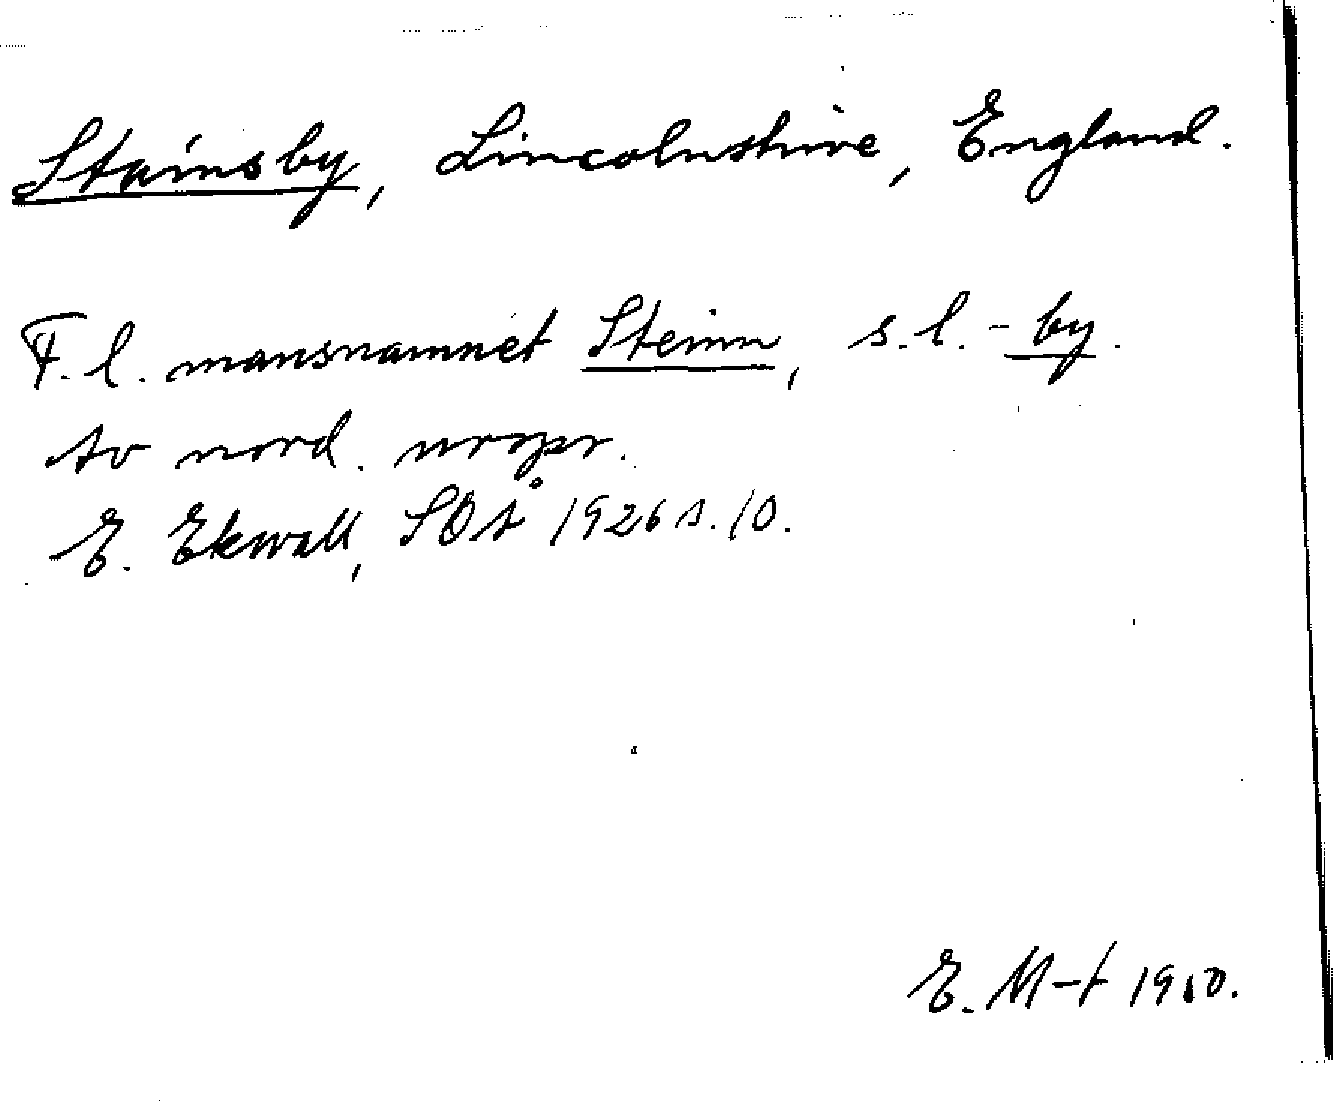 Stainsby, Lincolnshire, England.
F. l. mansnamnet Steinn, s.l. -by.
Av nord. urspr.
E. Ekwall, SOÅ 1926 s. 10.
E. M-t